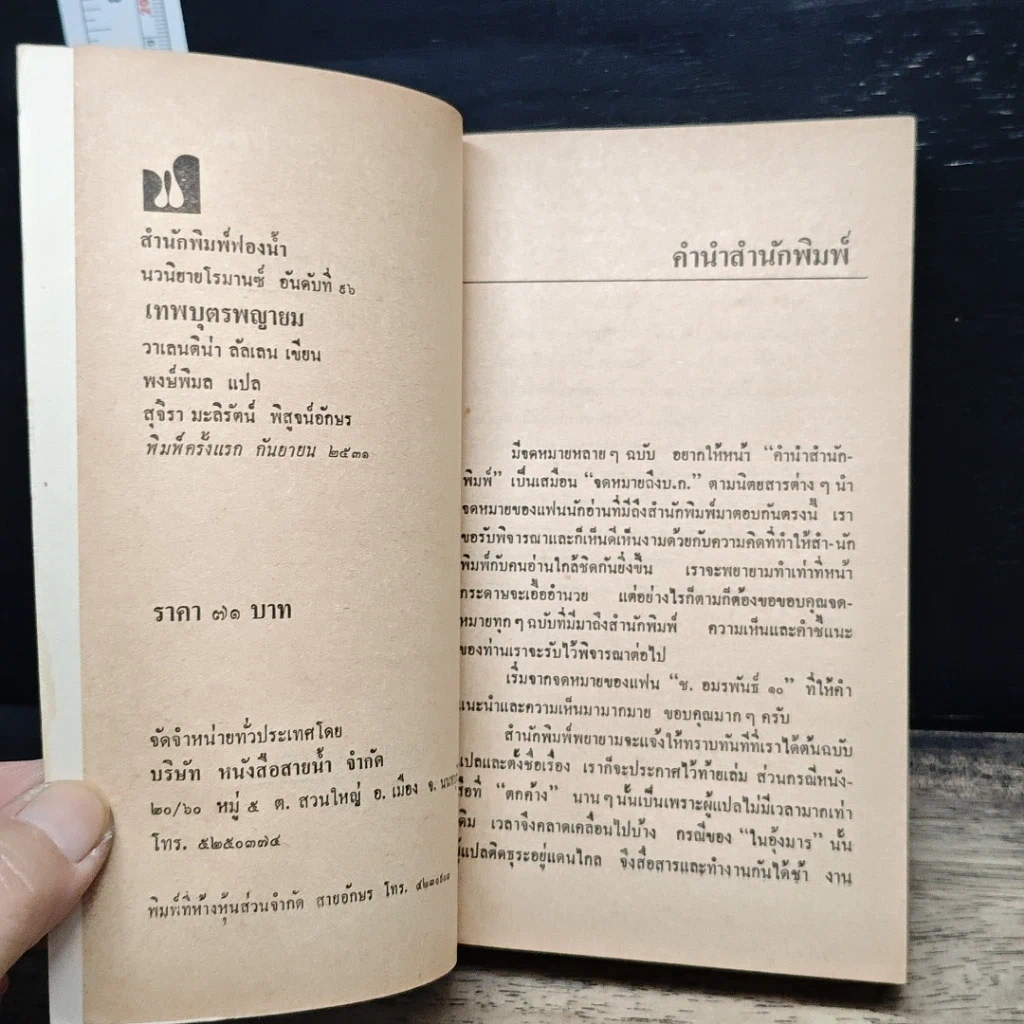 สำนักพิมพ์ฟองน้ำ
นวนิยายโรมานซ์ อันดับที่ ๙๖
เทพบุตรพญายม
วาเลนติน่า ลัลเลน เขียน
พงษ์พิมล แปล
สุจิรา มะลิรัตน์ พิสูจน์อักษร
พิมพ์ครั้งแรก กันยายน ๒๕๓๑
ราคา ๗๑ บาท
จัดจำหน่ายทั่วประเทศโดย
บริษัท หนังสือสายน้ำ จำกัด
๒๐/๖๐ หมู่ ๕ ต. สวนใหญ่ อ. เมือง จ.
โทร. ๕๒๕๐๓๗๔
พิมพ์ที่ห้างหุ้นส่วนจำกัด สายอักษร โทร.
คำนำสำนักพิมพ์
มีจดหมายหลายๆ ฉบับ อยากให้หน้า “คำนำสำนัก-
พิมพ์” เป็นเสมือน “จดหมายถึงบ.ก.” ตามนิตยสารต่าง ๆ นำ
จดหมายของแฟนนักอ่านที่มีถึงสำนักพิมพ์มาตอบกันตรงนี้ เรา
ขอรับพิจารณาและก็เห็นดีเห็นงามด้วยกับความคิดที่ทำให้สำ-นัก
พิมพ์กับคนอ่านใกล้ชิดกันยิ่งขึ้น เราจะพยายามทำเท่าที่หน้า
กระดาษจะเอื้ออำนวย แต่อย่างไรก็ตามก็ต้องขอขอบคุณจด-
หมายทุกๆ ฉบับที่มีมาถึงสำนักพิมพ์ ความเห็นและคำชี้แนะ
ของท่านเราจะรับไว้พิจารณาต่อไป
เริ่มจากจดหมายของแฟน “ช. อมรพันธ์ ๑๐” ที่ให้คำ
แนะนำและความเห็นมามากมาย ขอบคุณมากๆ ครับ
สำนักพิมพ์พยายามจะแจ้งให้ทราบทันทีที่เราได้ต้นฉบับ
แปลและตั้งชื่อเรื่อง เราก็จะประกาศไว้ท้ายเล่ม ส่วนกรณีหนัง-
สือที่ “ตกค้าง” นานๆ นั้นเป็นเพราะผู้แปลไม่มีเวลามากเท่า
เดิม เวลาจึงคลาดเคลื่อนไปบ้าง กรณีของ “ในอุ้งมาร” นั้น
ผู้แปลติดธุระอยู่แดนไกล จึงสื่อสารและทำงานกันได้ช้า งาน